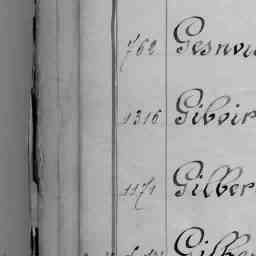 762 Gesnou
1316 Giboir
1171 Gilber
Gilber